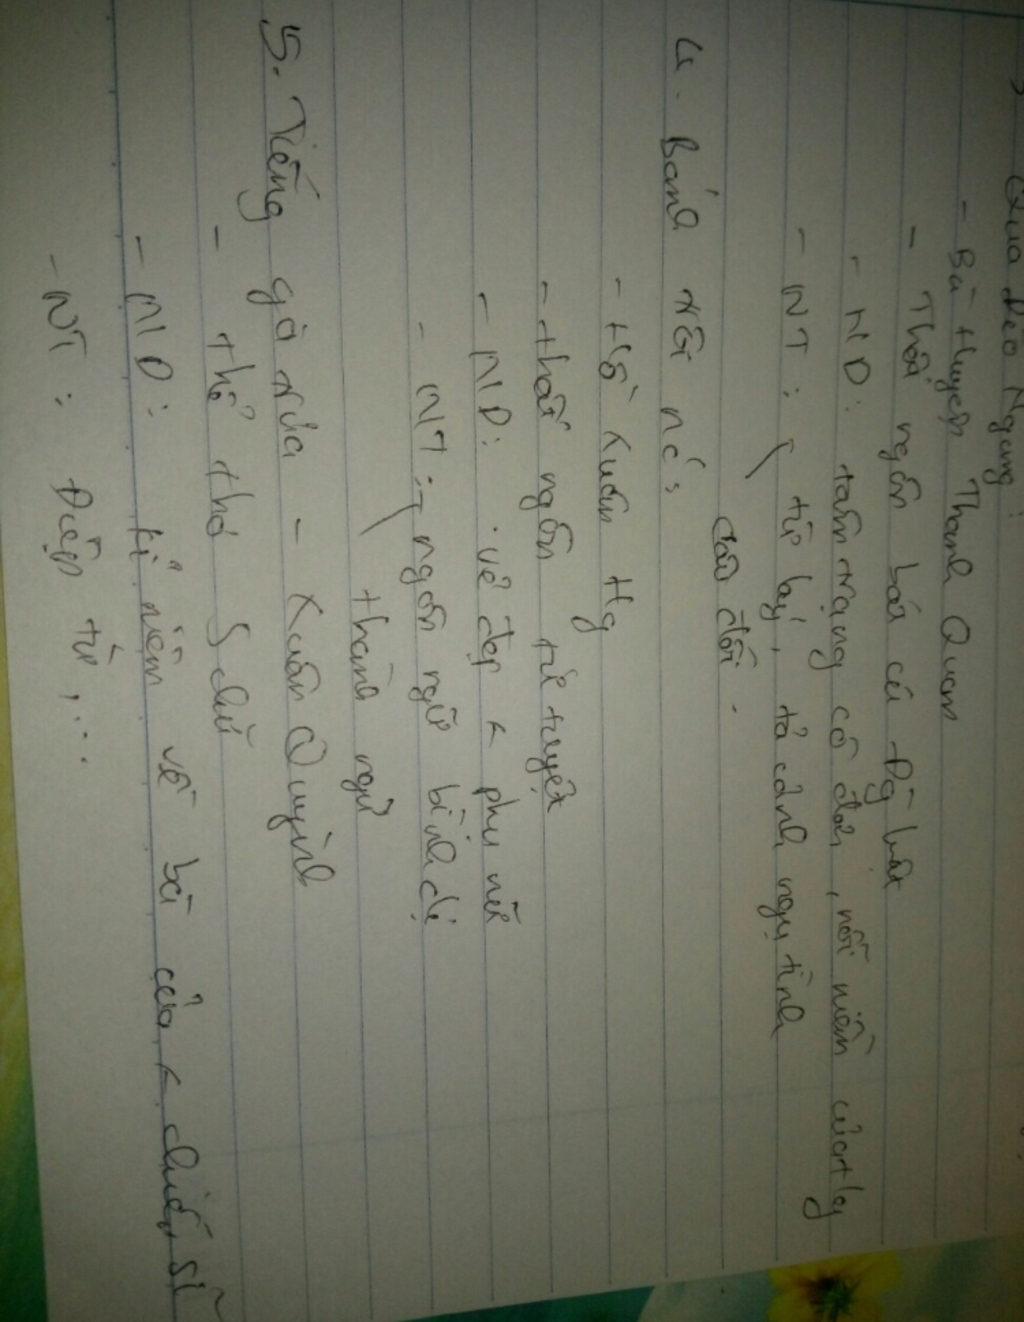 3 Qua đèo Ngang:
- Bà Huyện Thanh Quan
- Thất ngôn bát cú Đg luật
- ND: tâm trạng cô đơn, nỗi niềm của t/g
- NT: từ láy, tả cảnh ngụ tình
câu đối.
4. Bánh trôi nc:
- Hồ Xuân Hg
- thất ngôn tứ tuyệt
- ND: vẻ đẹp phụ nữ
- NT: ngôn ngữ bình dị
thành ngữ
5. Tiếng gà trưa - Xuân Quỳnh
- thể thơ 5 chữ
- ND: kỉ niệm về bà của chiến sĩ
- NT: Điệp từ,...